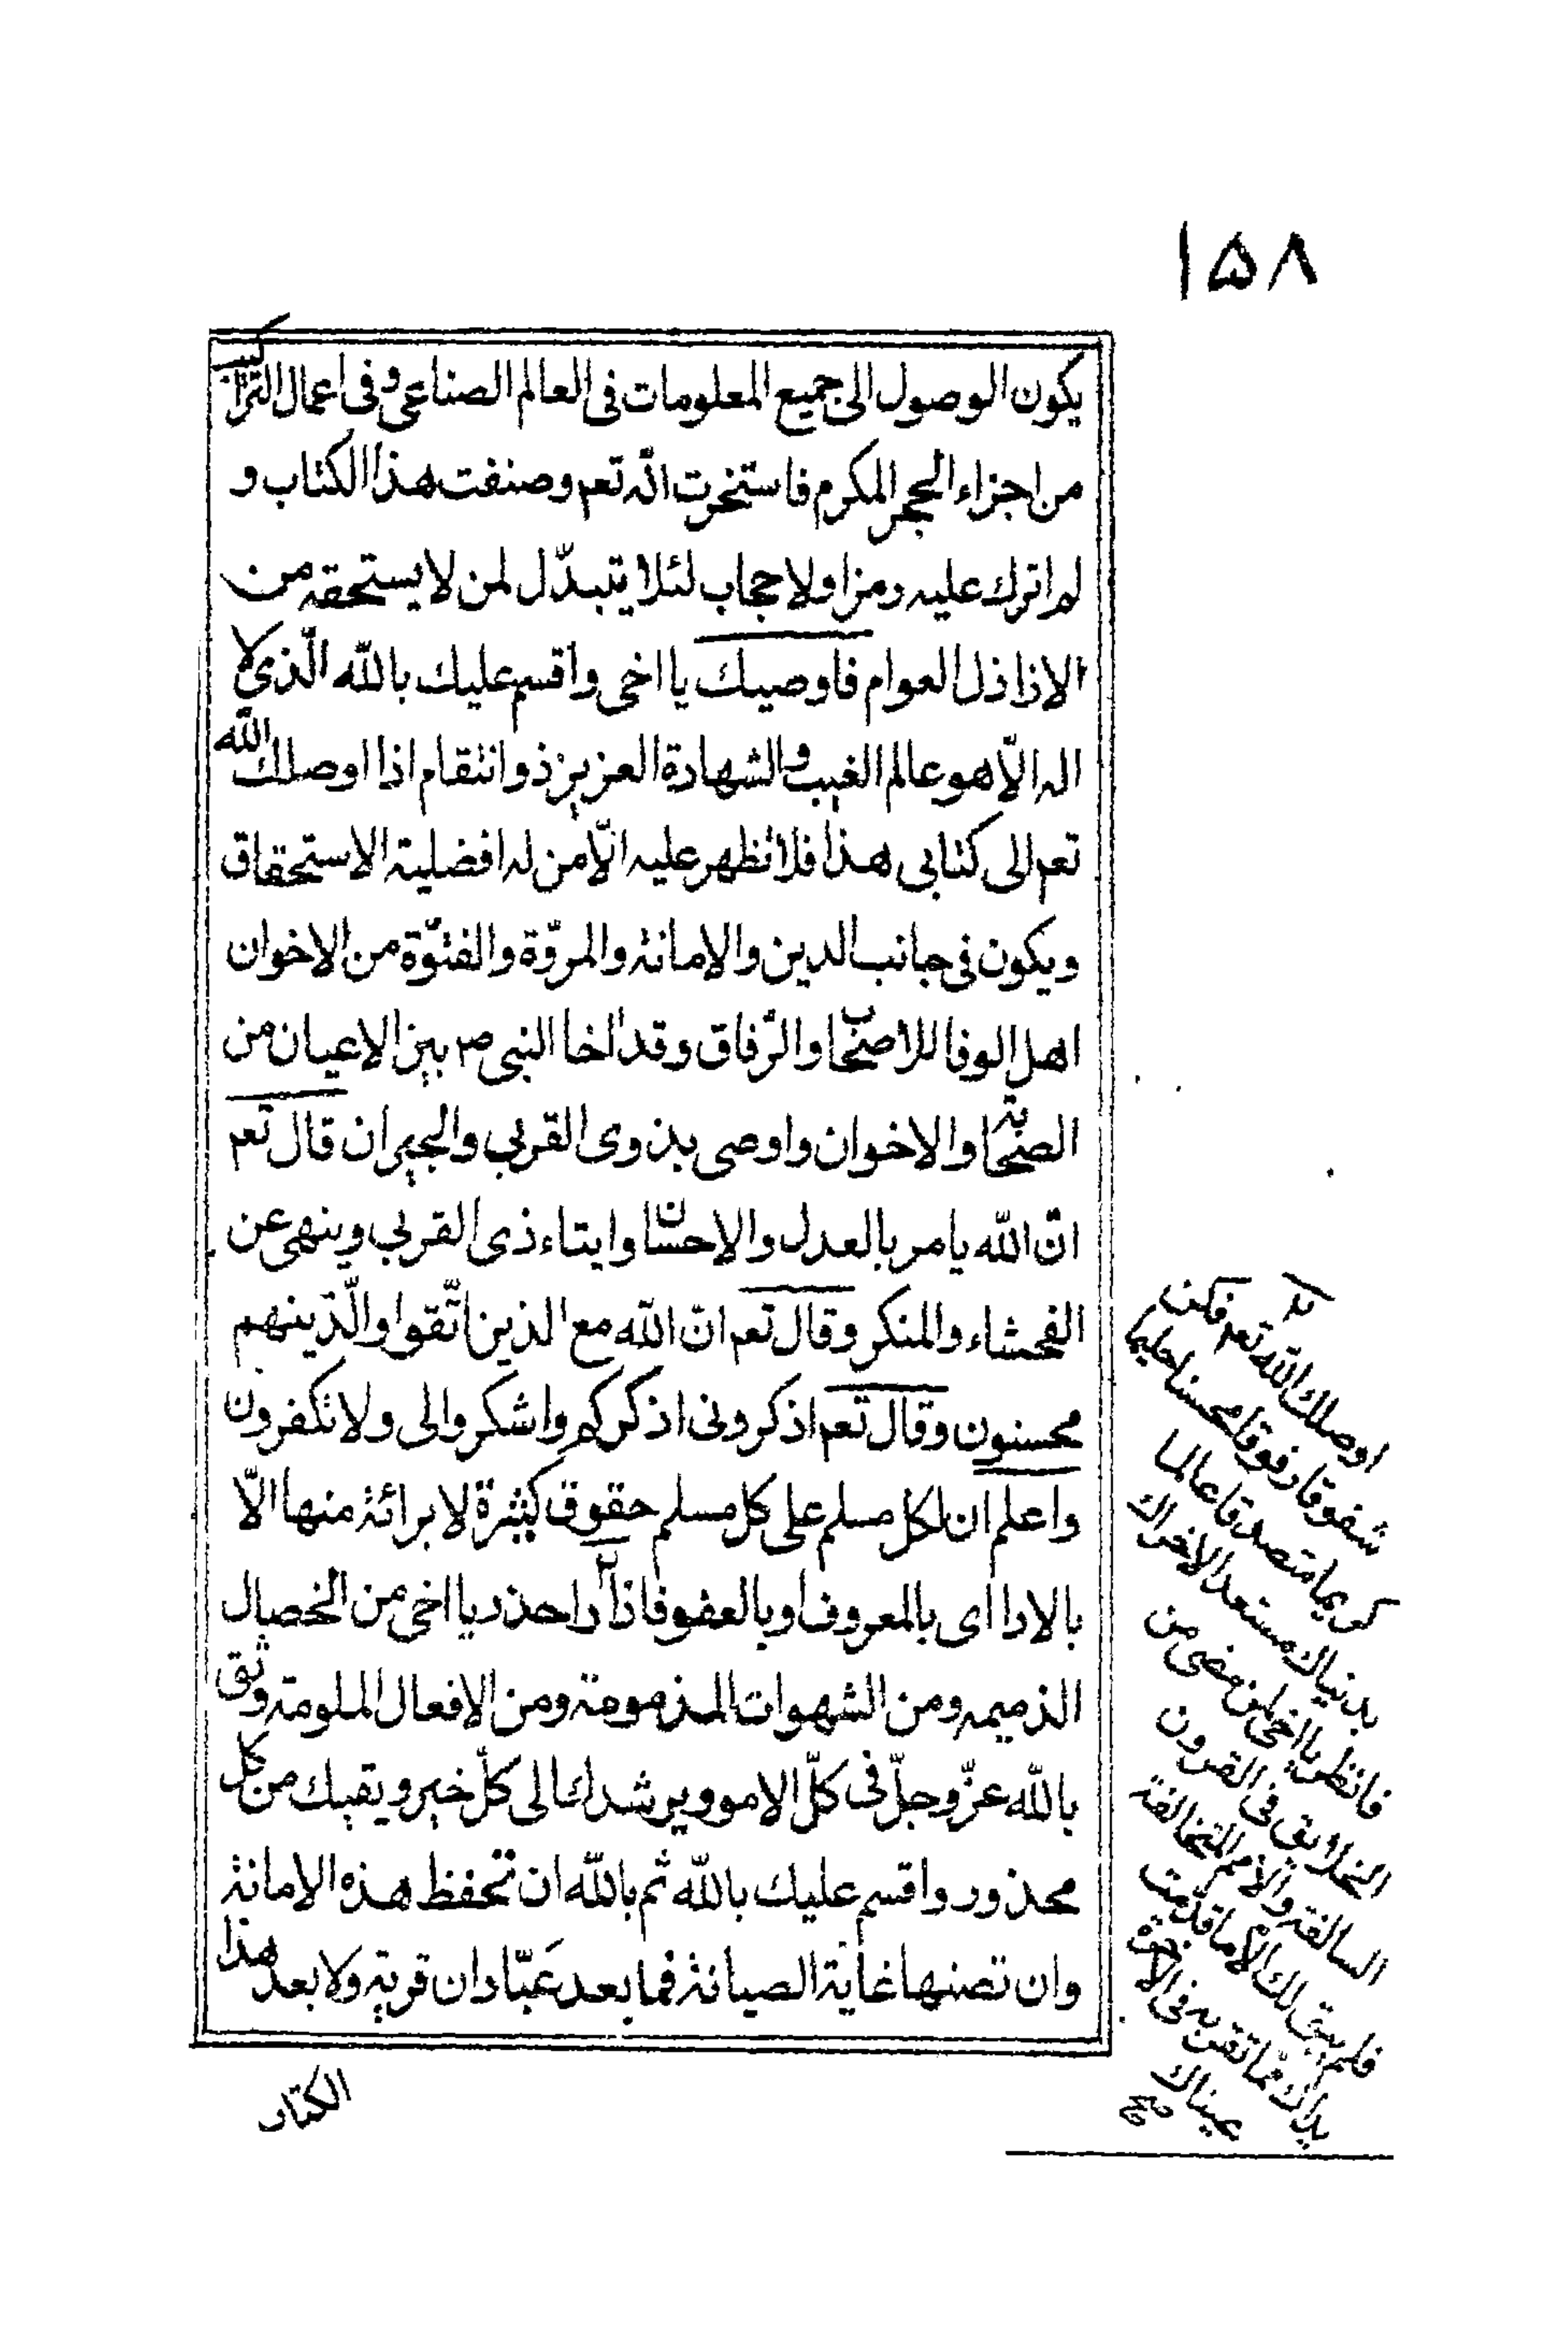 ١۵٨
يكون الوصول الى جميع المعلومات فى العالم الصناعى و فى اعمال التراكيب
من اجزاء الحجر المكرم فاستخرت الله تعم وصنفت هذا الكتاب و
لم اترك عليه رمزا ولا حجاب لئلا يتبدّل لمن لا يستحقه من
الاراذل العوام فاوصيك يا اخى واقسم عليك بالله الّذى لا
اله الّا هو عالم الغيب والشهادة العزيز ذو انتقام اذا اوصلك الله
تعم الى كتابى هذا فلا تظهر عليه الّا من له افضلية الاستحقاق
ويكون فى جانب الدين والامانة والمروّة والفتوّة من الاخوان
اهل الوفا للاصحاب والرّفاق وقد اخا النبى ص بين الاعيان من
الصحابة والاخوان واوصى بذوى القربى والجيران قال تعم
انّ الله يامر بالعدل والاحسان وايتاء ذى القربى وينهى عن
الفحشاء والمنكر وقال تعم انّ الله مع الذين اتّقوا والّذينهم
محسنون وقال تعم اذكرونى اذكركم واشكروا لى ولا تكفرون
واعلم ان لكل مسلم على كل مسلم حقوق كثيرة لا برائة منها الّا
بالادا اى بالمعروف او بالعفو فاذا احذر يا اخى من الخصال
الذميمه ومن الشهوات المذمومة ومن الافعال الملومة وثق
بالله عزّ وجلّ فى كلّ الامو ويرشدك الى كلّ خير ويقيك من كل
محذور واقسم عليك بالله ثم بالله ان تحفظ هذه الامانة
وان تصنها غاية الصيانة فما بعد عبّادان قرية ولا بعد هذا
الكتاب
اوصلك الله تعم فكن
شفوقا رفوقا محسنا حليما
كريما متصدقا عالما
بدنياك مستعد الاخراك
فانظر يا اخى لمن مضى من
الخلائق فى القرون
السالفة والامم المتخالفة
فلم يبق لك الا ما قدمت
يداك مما تقر به فى الاخرة
عيناك